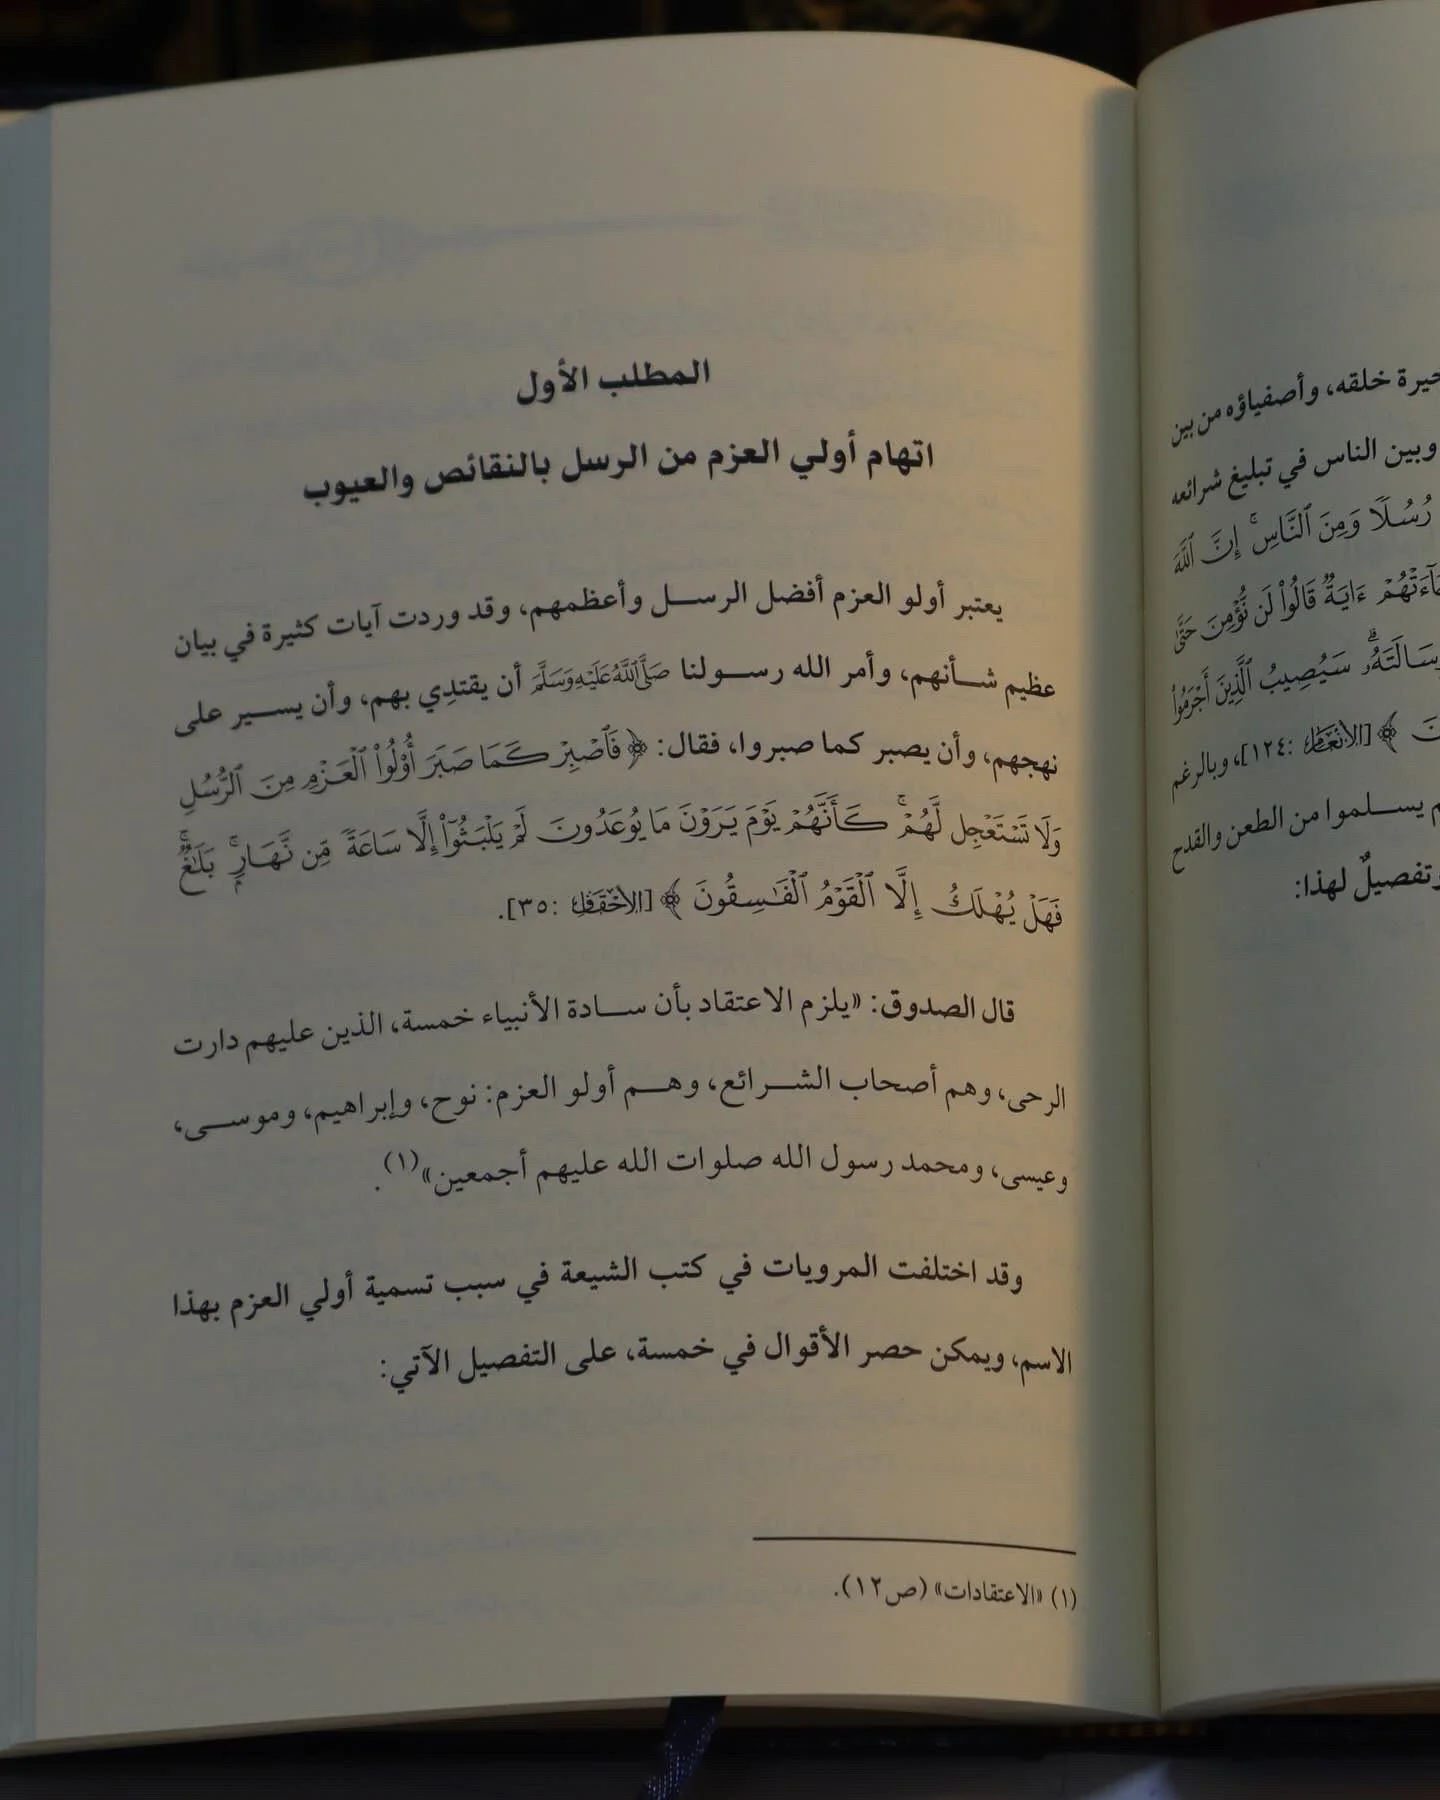 حيرة خلقه، وأصفياؤه من بين
وبين الناس في تبليغ شرائعه
رُسُلًا وَمِنَ ٱلنَّاسِۚ إِنَّ ٱللَّهَ
ءَايَةٞ قَالُواْ لَن نُّؤۡمِنَ حَتَّىٰ
سَيُصِيبُ ٱلَّذِينَ أَجۡرَمُواْ
﴾ [الأنعام: ١٢٤]، وبالرغم
يسلموا من الطعن والقدح
وتفصيلٌ لهذا:
المطلب الأول
اتهام أولي العزم من الرسل بالنقائص والعيوب
يعتبر أولو العزم أفضل الرسل وأعظمهم، وقد وردت آيات كثيرة في بيان
عظيم شأنهم، وأمر الله رسولنا صَلَّى اللَّهُ عَلَيْهِ وَسَلَّمَ أن يقتدِي بهم، وأن يسير على
نهجهم، وأن يصبر كما صبروا، فقال: ﴿فَٱصۡبِرۡ كَمَا صَبَرَ أُوْلُواْ ٱلۡعَزۡمِ مِنَ ٱلرُّسُلِ
وَلَا تَسۡتَعۡجِل لَّهُمۡۚ كَأَنَّهُمۡ يَوۡمَ يَرَوۡنَ مَا يُوعَدُونَ لَمۡ يَلۡبَثُوٓاْ إِلَّا سَاعَةٗ مِّن نَّهَارِۭۚ بَلَٰغٞۚ
فَهَلۡ يُهۡلَكُ إِلَّا ٱلۡقَوۡمُ ٱلۡفَٰسِقُونَ﴾ [الأحقاف: ٣٥].
قال الصدوق: «يلزم الاعتقاد بأن سادة الأنبياء خمسة، الذين عليهم دارت
الرحى، وهم أصحاب الشرائع، وهم أولو العزم: نوح، وإبراهيم، وموسى،
وعيسى، ومحمد رسول الله صلوات الله عليهم أجمعين»(١).
وقد اختلفت المرويات في كتب الشيعة في سبب تسمية أولي العزم بهذا
الاسم، ويمكن حصر الأقوال في خمسة، على التفصيل الآتي:
(١) «الاعتقادات» (ص١٢).